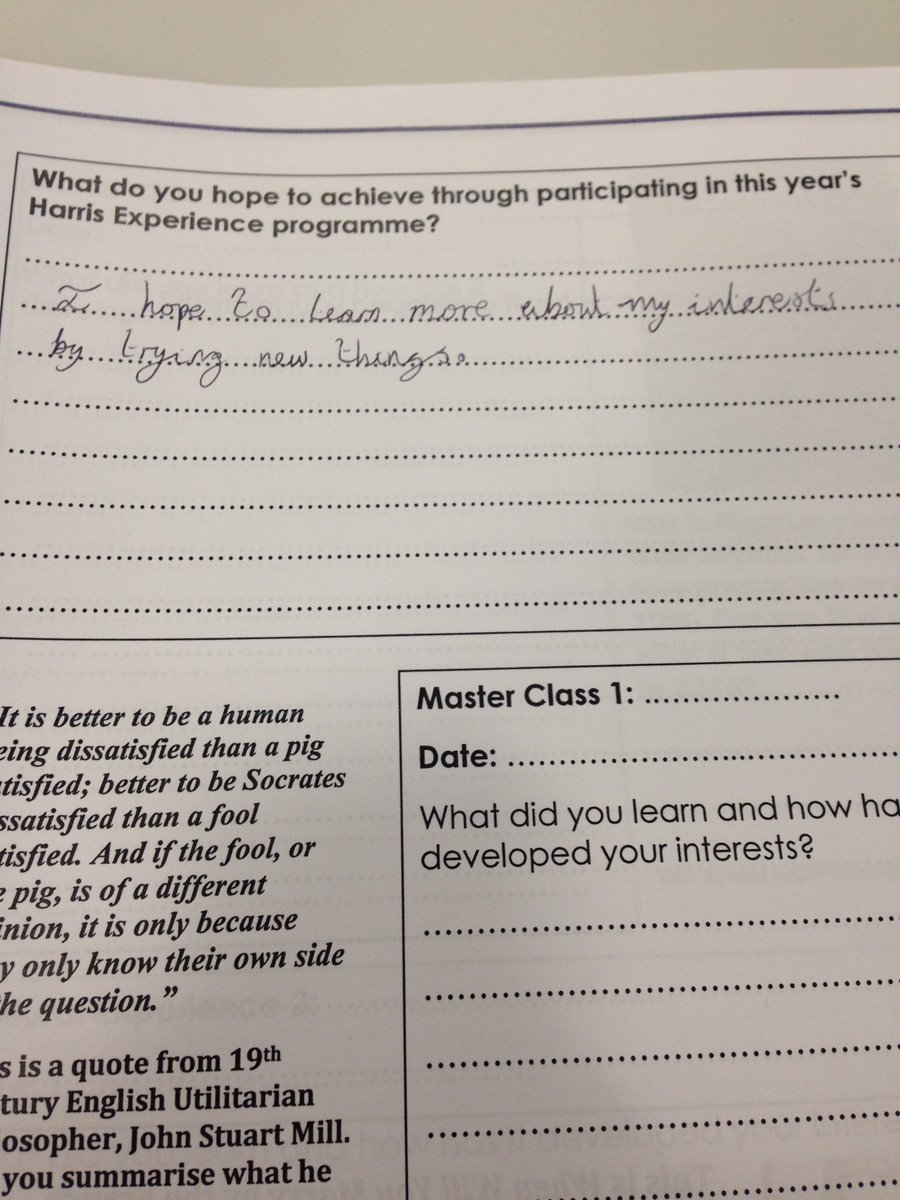 What do you hope to achieve through participating in this year's
Harris Experience programme?
I hope to learn more about my interests
by trying new things.
It is better to be a human
eing dissatisfied than a pig
atisfied; better to be Socrates
ssatisfied than a fool
tisfied. And if the fool, or
e pig, is of a different
inion, it is only because
y only know their own side
the question."
s is a quote from 19th
tury English Utilitarian
losopher, John Stuart Mill.
you summarise what he
Master Class 1: ....................
Date: ........................................
What did you learn and how ha
developed your interests?